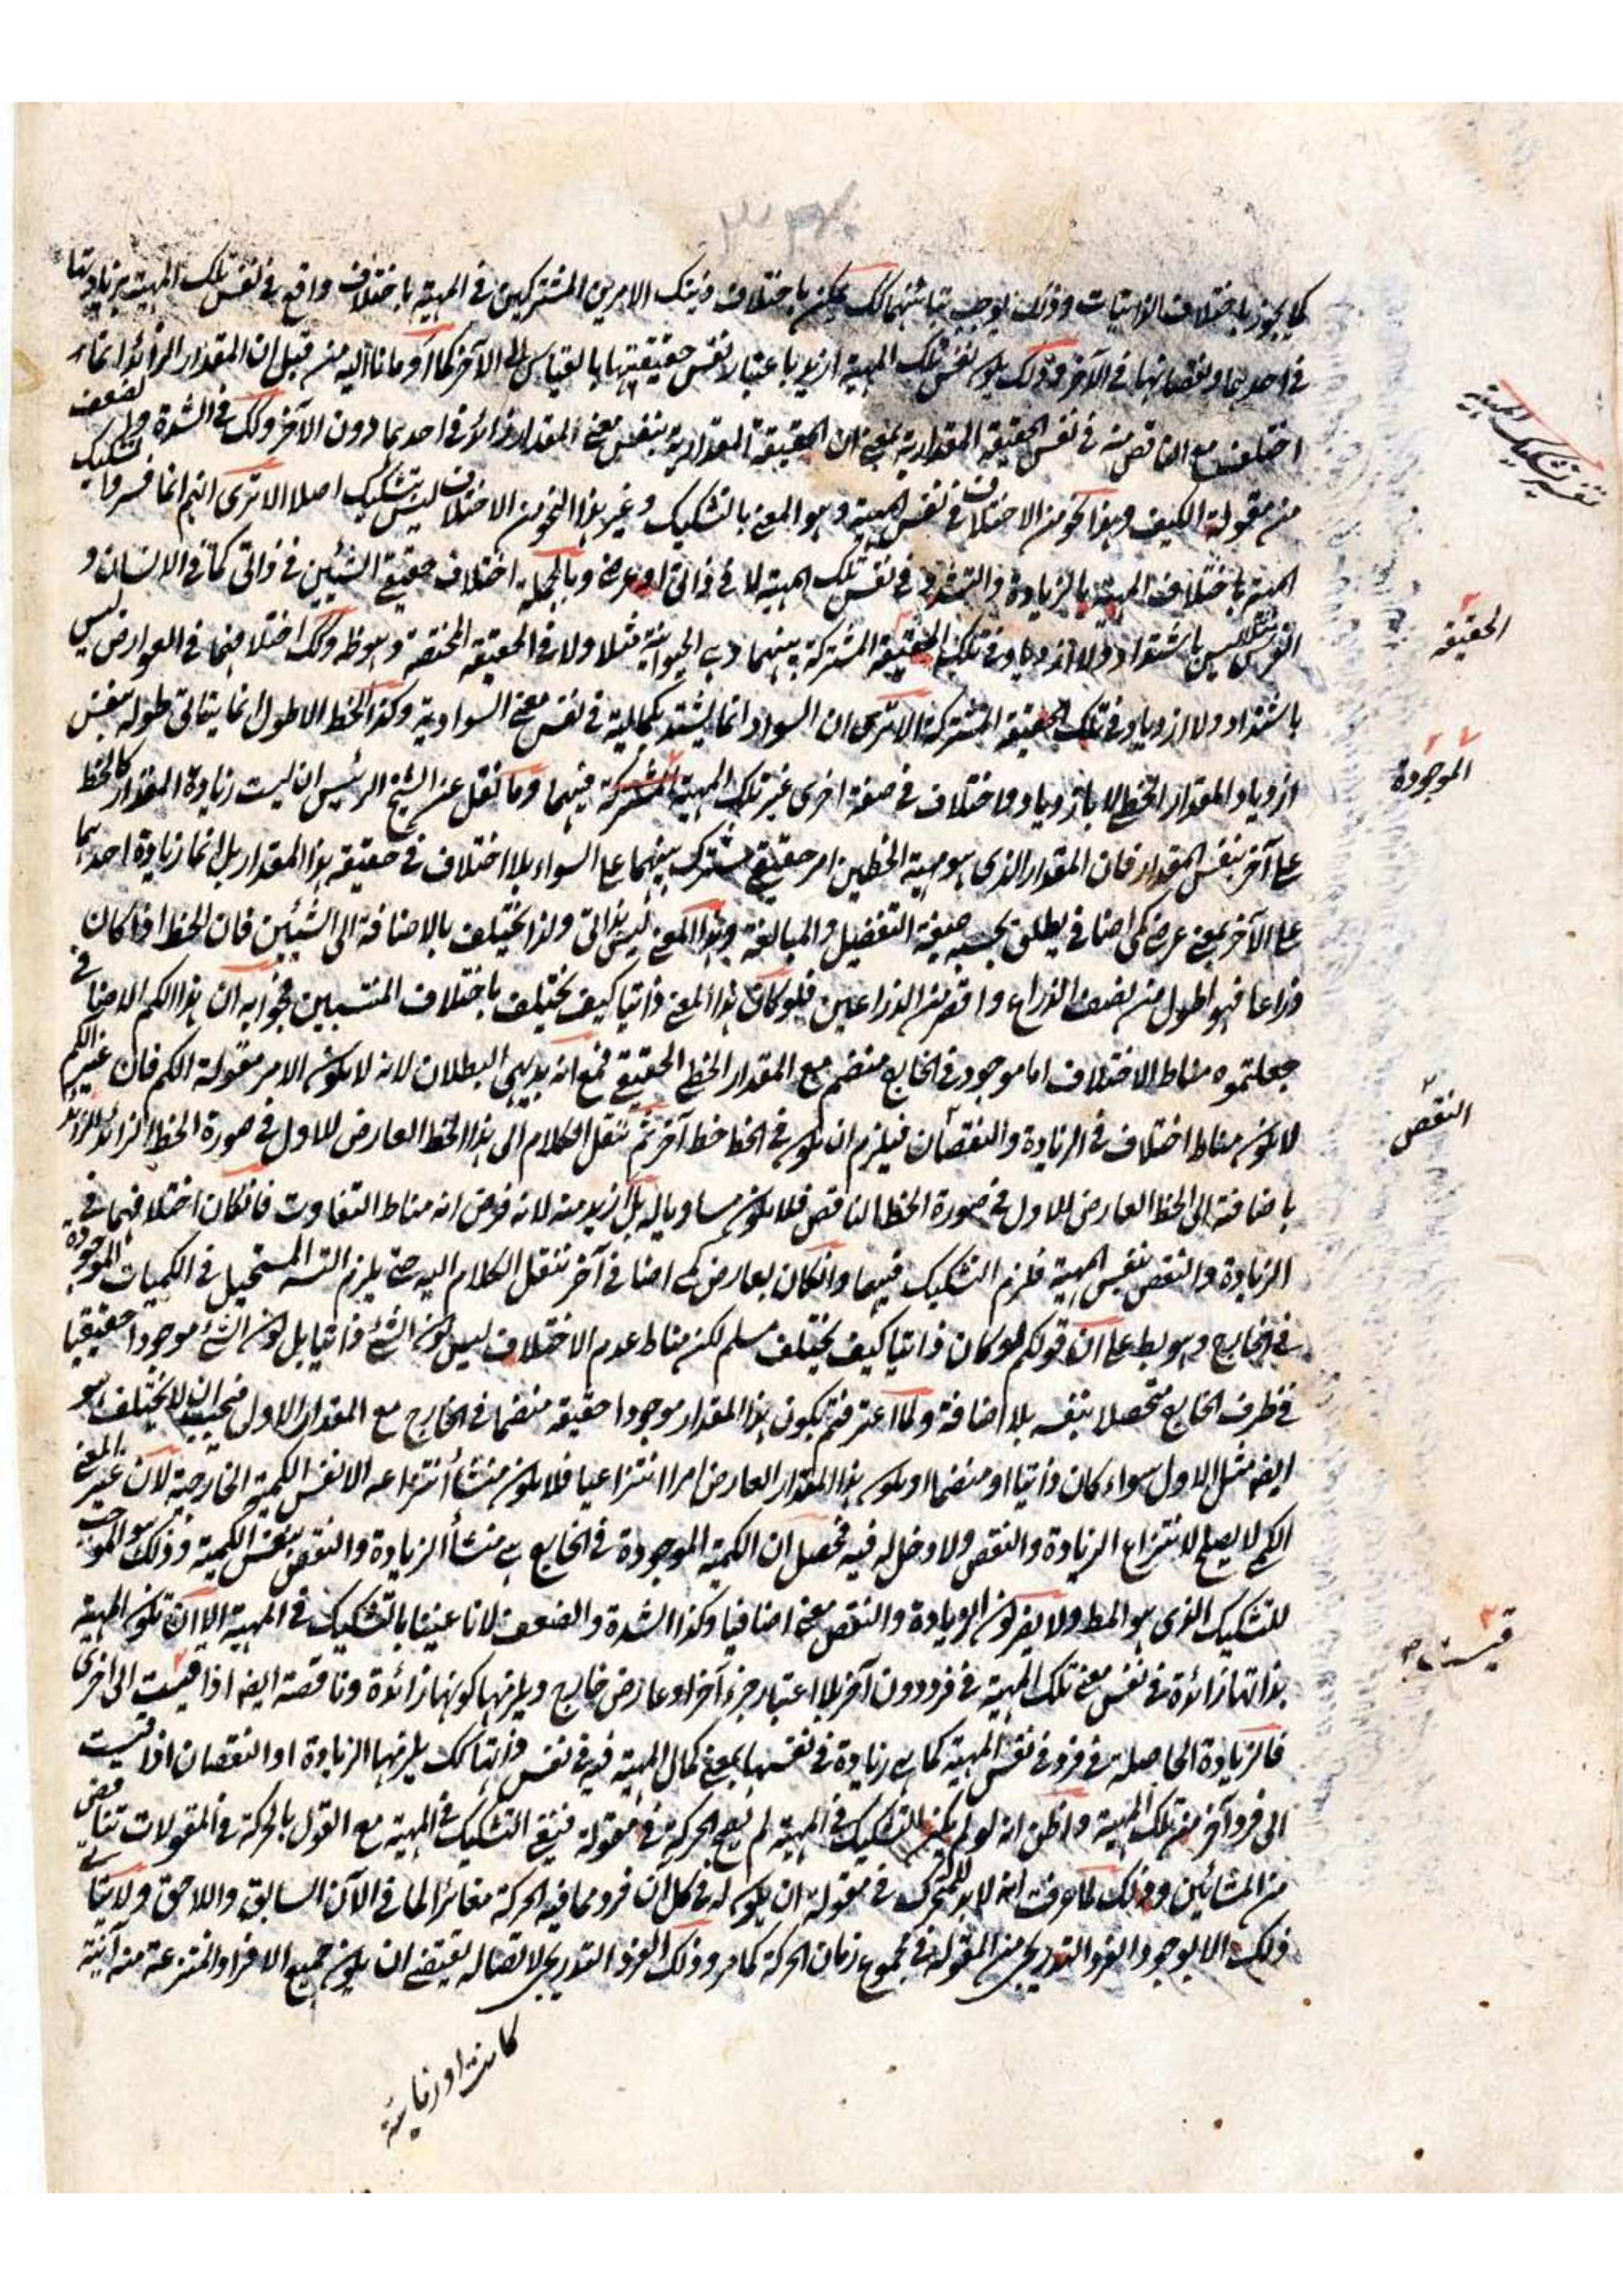 كما يجوز باختلاف الذاتيات وذلك يوجب تباينهما كك يمكن باختلاف ذينك الامرين المشتركين في المهية باختلاف واقع في نفس تلك المهية بزيادتها
في احديهما ونقصانها في الآخر وذلك بكون نفس تلك المهية ازيد باعتبار نفس حقيقتها بالقياس الى الآخر كما اومانا اليه من قبل ان المقدار الزائد انما
اختلف مع الناقص منه في نفس الحقيقة المقدارية بمعنى ان الحقيقة المقدارية بنفس معنى المقدار زائد في احديهما دون الآخر وكك في الشدة والضعف
من مقولة الكيف وهذا النحو من الاختلاف في نفس المهية وهو المعنى بالتشكيك وغير هذا النحو من الاختلاف ليس بتشكيك اصلا الا ترى انهم انما فسروا تشكيك
المهية باختلاف المهية بالزيادة والتشدد في نفس تلك المهية لا في ذاتى او عرضى وبالجملة اختلاف حقيقة الشيئين في ذاتى كما في الانسان و
الفرس مثلا ليس باشتداد ولا ازدياد في تلك الحقيقة المشتركة بينهما وهي الحيوانية مثلا ولا في الحقيقة المختصة وهو ظ وكك اختلافهما في العوارض ليس
باشتداد ولا ازدياد في تلك الحقيقة المشتركة الا ترى ان السواد انما يشتد بكماليته في نفس معنى السوادية وكذا الخط الاطول انما يتمالى طوله بنفس
ازدياد المقدار الخطى لا بازدياد واختلاف في صفة اخرى غير تلك المهية المشتركة فيهما وما نقل عن الشيخ الرئيس ان ليست زيادة المقدار كالخط
على آخر بنفس المقدار فان المقدار الذى هو مهية الخطين امر حقيقى مشترك بينهما على السواء بلا اختلاف في حقيقة هذا المقدار بل انما زيادة احديهما
على الآخر بمعنى عرضى كمى اضافى يطلق بحسبه صيغة التفضيل والمبالغة وهذا المعنى ليس بذاتى ولذا يختلف بالاضافة الى الشيئين فان الخط اذا كان
ذراعا فهو اطول من نصف الذراع واقصر من الذراعين فلو كان هذا المعنى ذاتيا كيف يختلف باختلاف المنتسبين فجوابه ان هذا الكم الاضافى
جعلتموه مناط الاختلاف اما موجود في الخارج منضم مع المقدار الخطى الحقيقى فمع انه بديهى البطلان لانه لا يكون الامر مقولة الكم فان غير الكم
لا يكون مناط اختلاف في الزيادة والنقصان فيلزم ان يكون في الخط خط آخر ثم ننقل الكلام الى هذا الخط العارض للاول في صورة الخط الزائد
باضافته الى الخط العارض للاول في صورة الخط الناقص فلا يكون مساويا له بل ازيد منه لانه فرض انه مناط التفاوت فان كان اختلافهما في
الزيادة والنقص بنفس المهية فلزم التشكيك فيها وان كان بعارض كمى اضافى آخر ننقل الكلام اليه حتى يلزم التسه المستحيل في الكميات الموجودة
في الخارج وهو بط على ان قولكم لو كان ذاتيا كيف يختلف مسلم لكن مناط عدم الاختلاف ليس كون الشئ ذاتيا بل كون الشئ موجودا حقيقيا
في ظرف الخارج متحصلا بنفسه بلا اضافة ولما اعترفتم بكون هذا المقدار موجودا حقيقة منضما في الخارج مع المقدار الاول فيجب ان لا يختلف هو
ايضه مثل الاول سواء كان ذاتيا او منضما او يكون هذا المقدار العارض امرا انتزاعيا فلا يكون منشأ انتزاعه الا نفس الكمية الخارجية لان غير المعنى
الكمى لا يصلح لانتزاع الزيادة والنقص ولا دخل له فيه فحصل ان الكمية الموجودة في الخارج هي منشأ الزيادة والنقص بنفس الكمية وذلك هو الموجب
للتشكيك الذى هو المط ولا يضر كون الزيادة والنقص معنى اضافيا وكذا الشدة والضعف لانا عنينا بالتشكيك في المهية الا ان تكون المهية
بذاتها زائدة في نفس معنى تلك المهية في فرد دون آخر بلا اعتبار جزء آخر او عارض خارج ويلزمها كونها زائدة وناقصة ايضه اذا قيست الى اخرى
فالزيادة الحاصلة في فرد في نفس المهية كما هي زيادة في نفسها بمعنى كمال المهية فيه في نفس ذاتها كك يلزمها الزيادة او النقصان اذا قيست
الى فرد آخر من تلك المهية واظن انه لو لم يكن التشكيك في المهية لم يصح الحركة في مقولة فنفى التشكيك في المهية مع القول بالحركة في المقولات تناقض
من المشائين وذلك لما عرفت انه لا بد للمتحرك في مقولة ان يكون له في كل ان فرد مما فيه الحركة مغائرا لما في الآن السابق واللاحق ولا يتأتى
ذلك الا بوجود الفرد التدريجى من المقولة في مجموع زمان الحركة كما مر وذلك الفرد التدريجى لاتصاله يقتضى ان يكون جميع الافراد المنتزعة منه آنية
كانت او زمانية
تفسير تشكيك المهية
الحقيقة
الموجودة
النقص
قيست